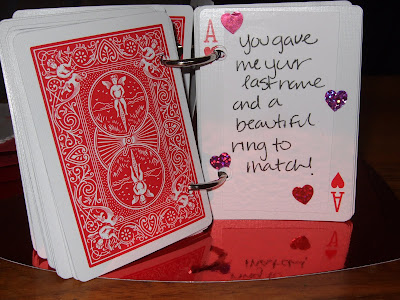 A
you gave
me your
last name
and a
beautiful
ring to
match!
A